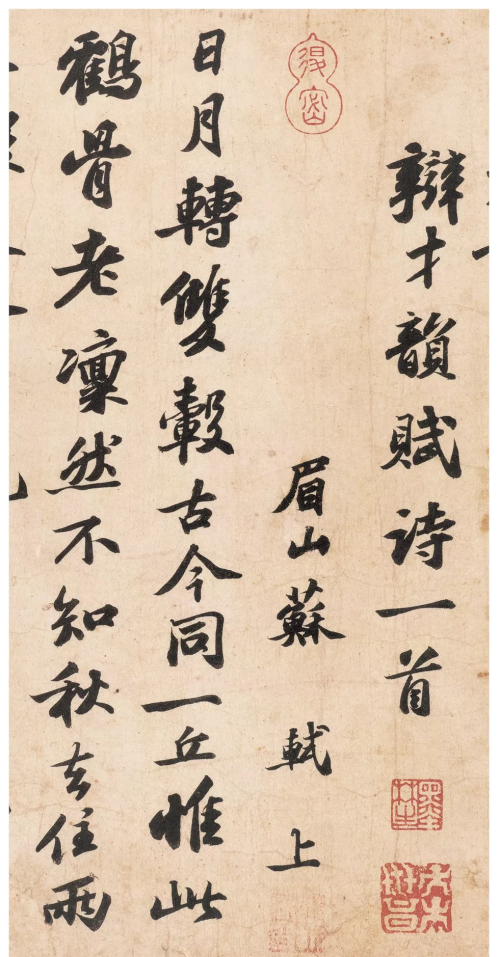 辯才韻賦詩一首
眉山蘇 軾上
日月轉雙轂古今同一丘惟此
鶴骨老凜然不知秋去住兩